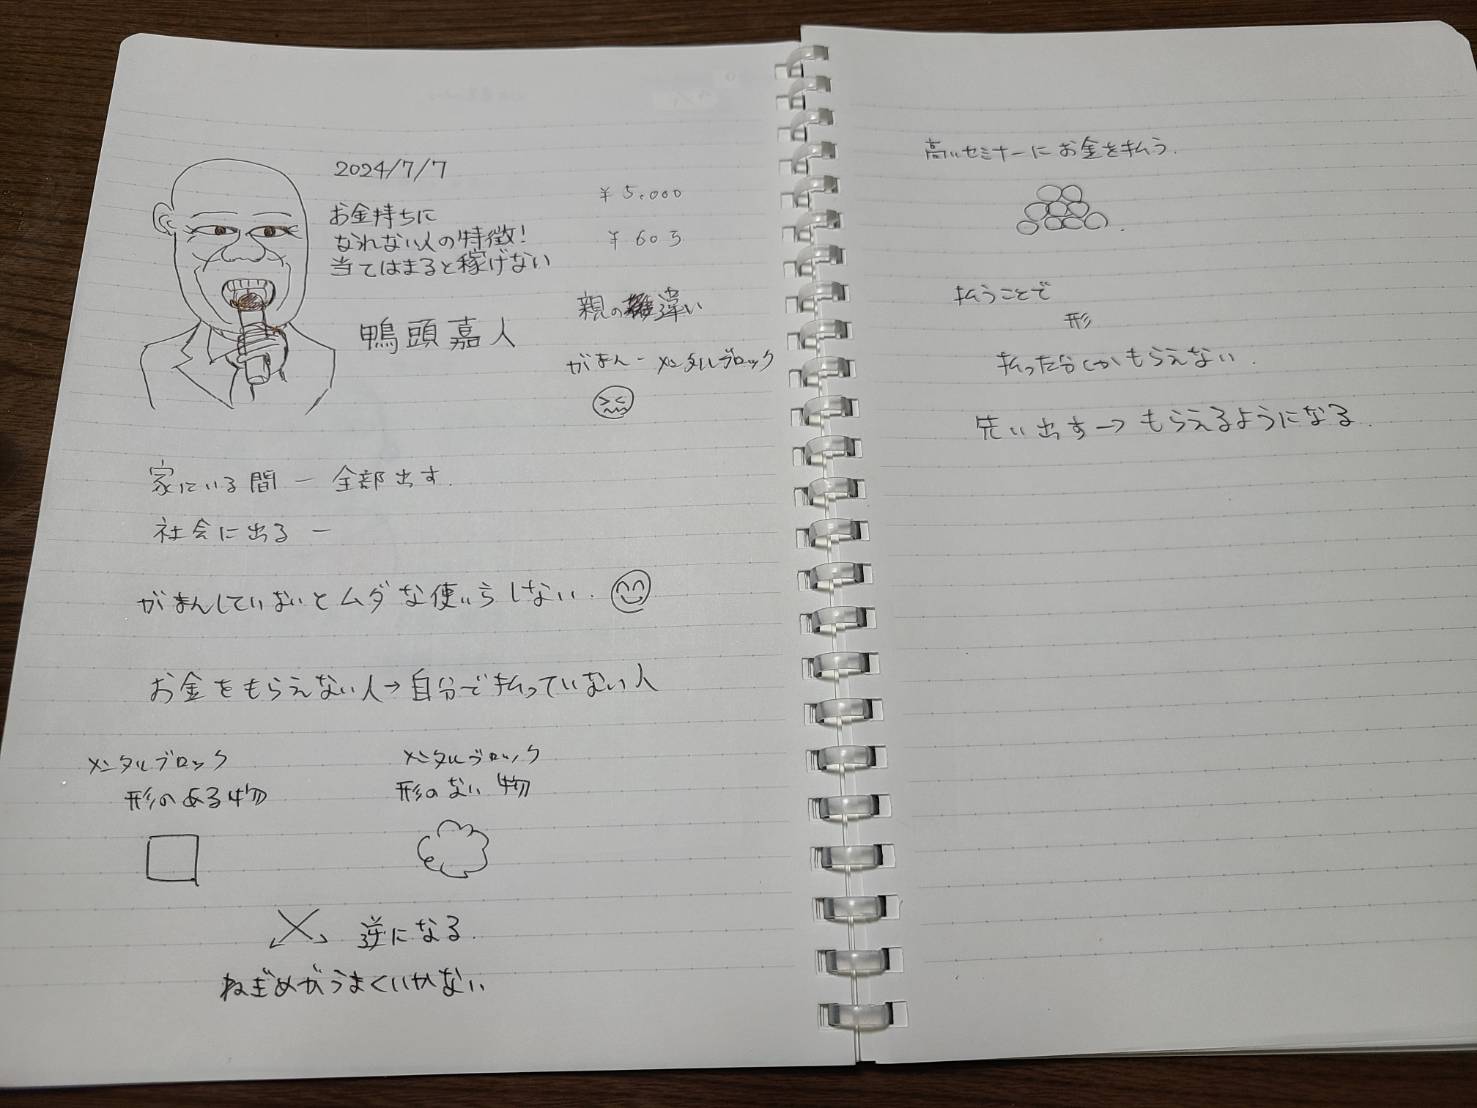 2024/7/7
お金持ちに
なれない人の特徴!
当てはまると稼げない
鴨頭嘉人
¥5,000
¥603
親の違い
がまん - メンタルブロック
家にいる間 ー 全部出す.
社会に出る ー
がまんしていないとムダな使いらしない.
お金をもらえない人→自分で払っていない人
メンタルブロック
形のある物
メンタルブロック
形のない物
逆になる.
ねぎめがうまくいかない.
高いセミナーにお金を払う.
払うことで
形
払った分しかもらえない.
先い出す→もらえるようになる.